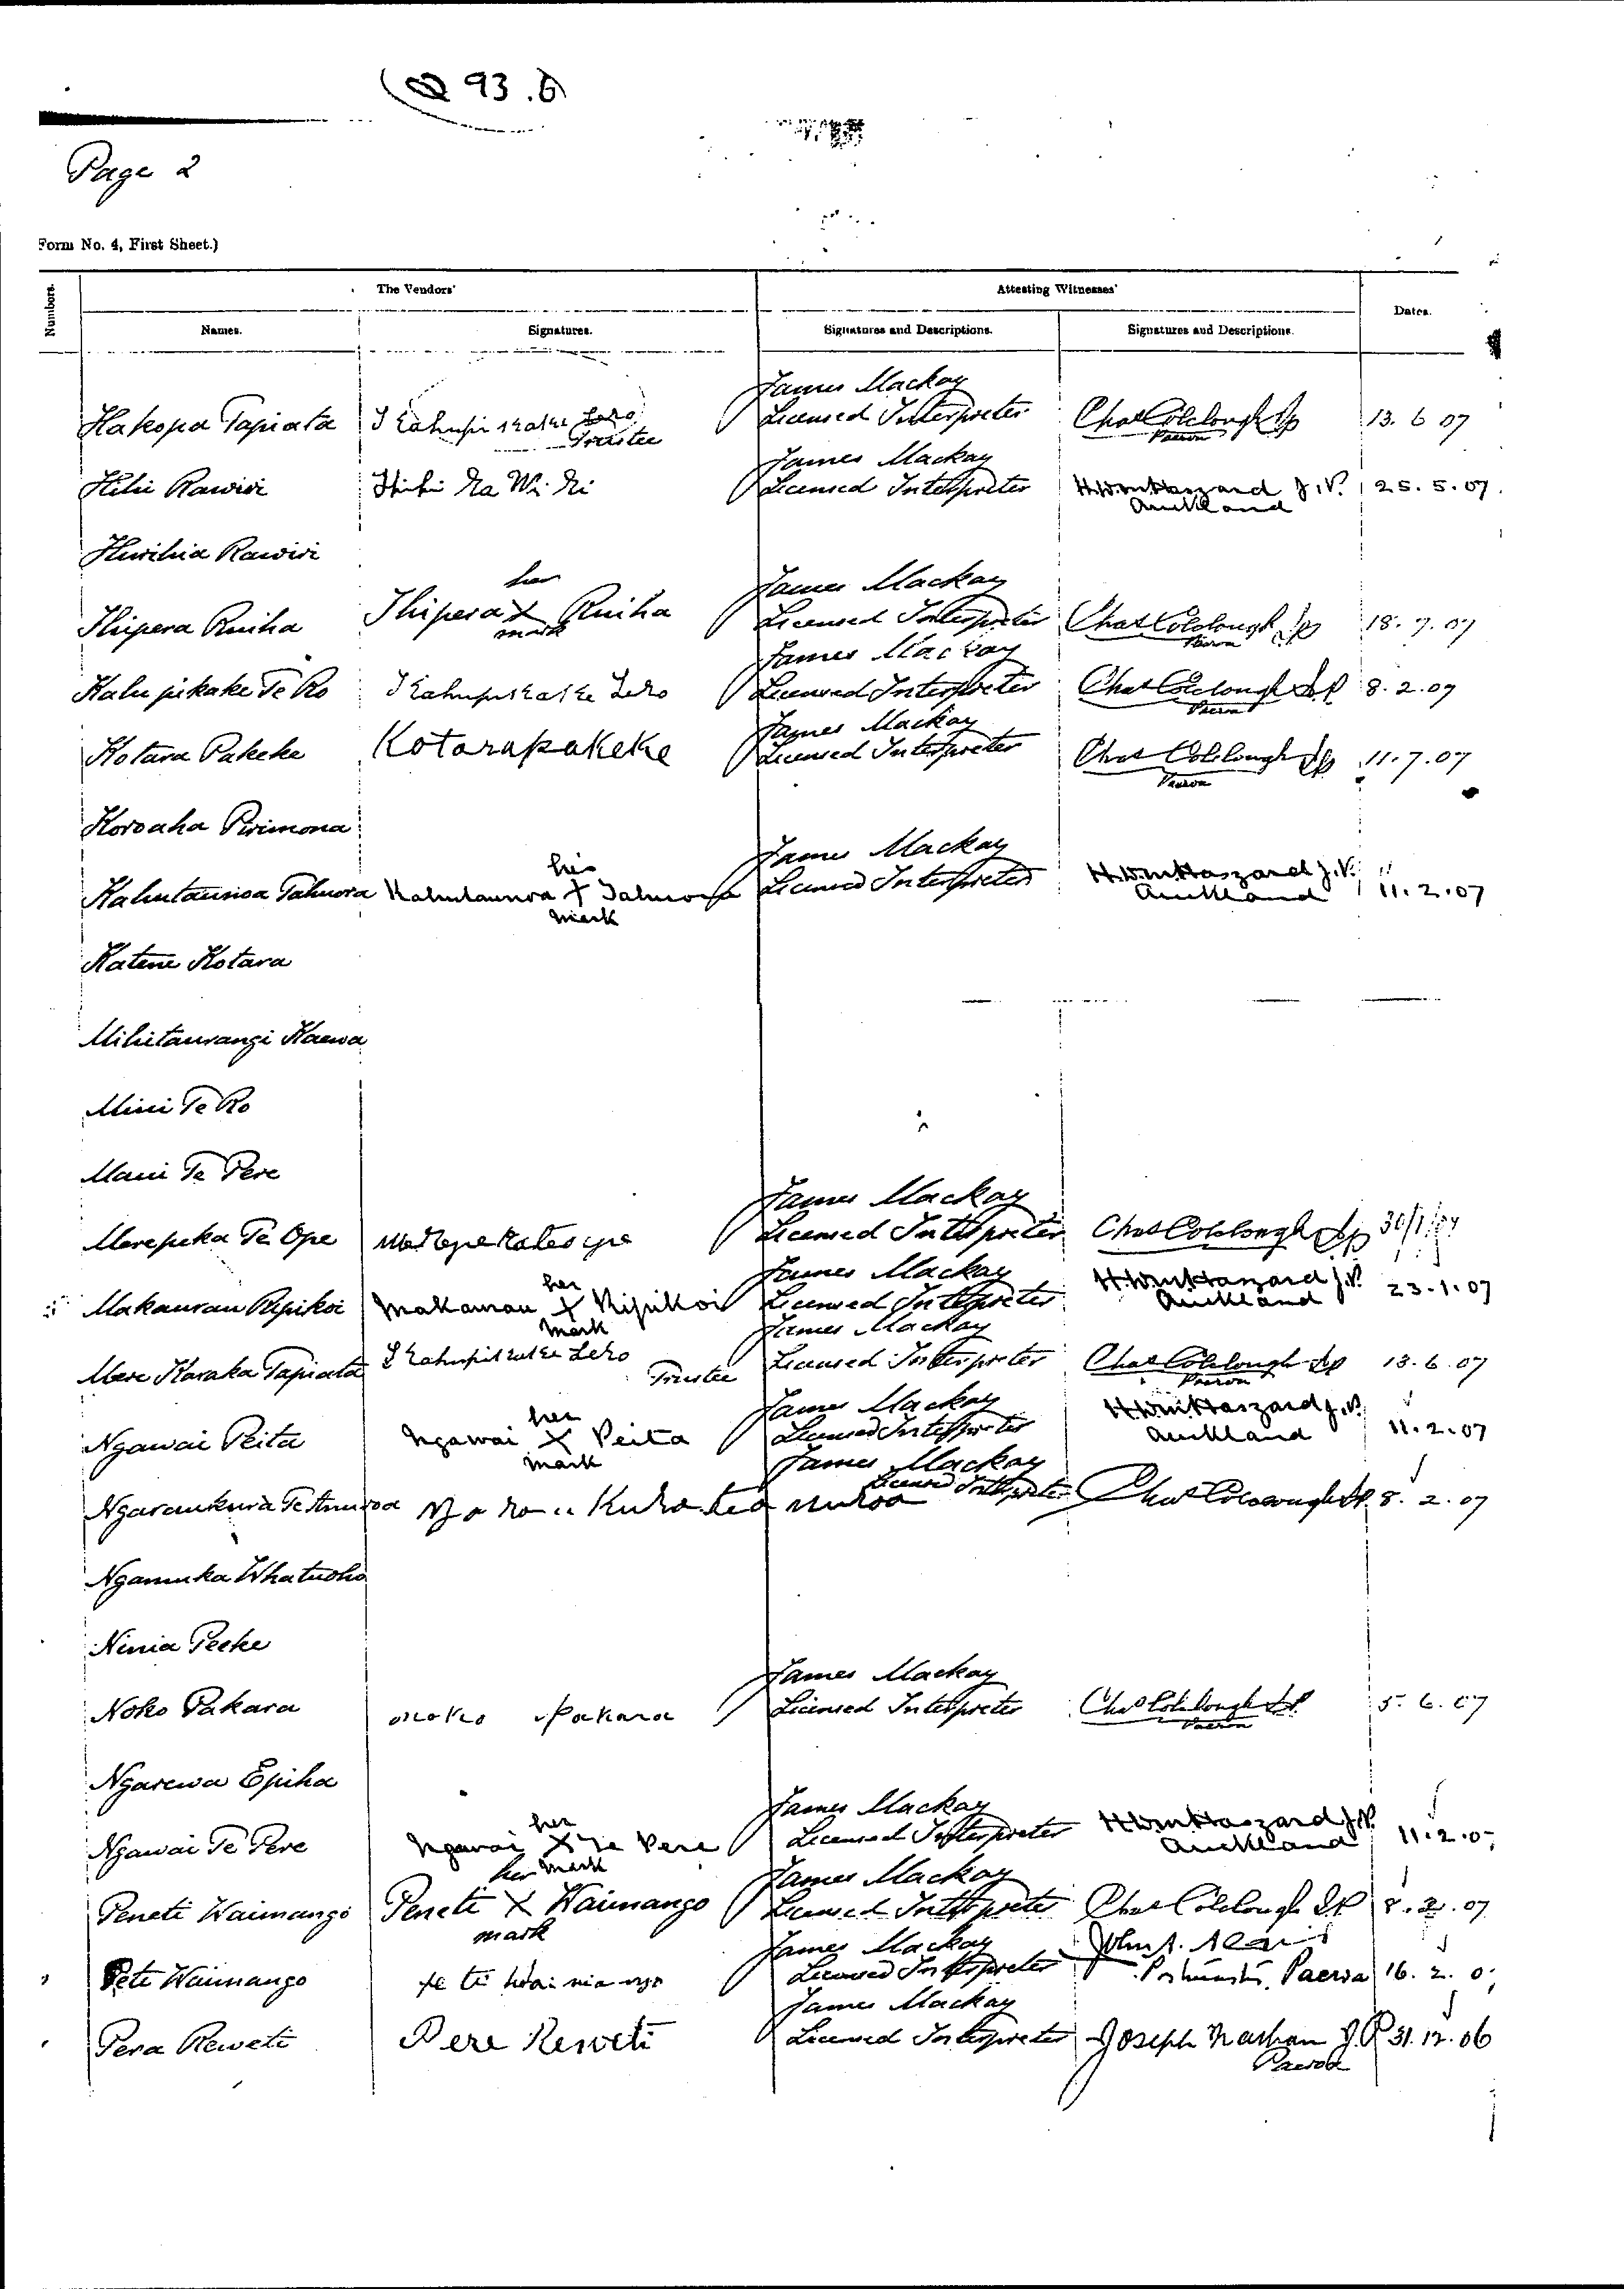 93.
Page 2
Form No. 4, First Sheet.)
Numbers.
The Vendors'
Attesting Witnesses'
Dates.
Names.
Signatures.
Signatures and Descriptions.
Signatures and Descriptions.
Hakopa Tapiata
Trustee
James Mackay
Licensed Interpreter
Chas Colclough Jp
Paeroa
13. 6 07
Hihi Rawiri
Hihi Ra Wi Ri
James Mackay
Licensed Interpreter
Haszard J.P.
Auckland
25. 5. 07.
Hurihia Rawiri
Ihipera Ruiha
her
Ihipera X Ruiha
mark
James Mackay
Licensed Interpreter
Chas Colclough Jp
Paeroa
18. 7. 07
Kahupikake Te Ro
James Mackay
Licensed Interpreter
Chas Colclough J.P
Paeroa
8. 2. 07
Kotara Pakeke
Kotarapakeke
James Mackay
Licensed Interpreter
Chas Colclough Jp
Paeroa
11. 7. 07
Koroaha Pirimona
Kahutaunoa Tahuora
his
Kahutaunoa X Tahuora
mark
James Mackay
Licensed Interpreter
Haszard J.P.
Auckland
11. 2. 07
Katene Kotara
Mihitaurangi Kaewa
Mini Te Ro
Maui Te Pere
Merepeka Te Ope
James Mackay
Licensed Interpreter
Chas Colclough Jp
Makaurau Ripikoi
her
Makaurau X Ripikoi
mark
James Mackay
Licensed Interpreter
Haszard J.P.
Auckland
23. 1. 07
Mere Karaka Tapiata
Trustee
James Mackay
Licensed Interpreter
Chas Colclough Jp
Paeroa
13. 6. 07
Ngawai Peita
her
Ngawai X Peita
mark
James Mackay
Licensed Interpreter
Haszard J.P.
Auckland
11. 2. 07
James Mackay
Licensed Interpreter
Chas Colclough J.P.
8. 2. 07
Ngamuka Whatuoho
Ninia Peeke
Noko Pakara
noko Pakara
James Mackay
Licensed Interpreter
Chas Colclough J.P.
Paeroa
5. 6. 07
Ngarewa Epiha
Ngawai Te Pere
her
Ngawai X Te Pere
mark
James Mackay
Licensed Interpreter
Haszard J.P.
Auckland
11. 2. 0
Peneti Waimango
her
Peneti X Waimango
mark
James Mackay
Licensed Interpreter
Chas Colclough J.P
8. 2. 07
Pete Waimango
James Mackay
Licensed Interpreter
John
Postmaster, Paeroa
16. 2. 0
Pera Reweti
Pere Reweti
James Mackay
Licensed Interpreter
Joseph Nathan J.P
Paeroa
31. 12. 06